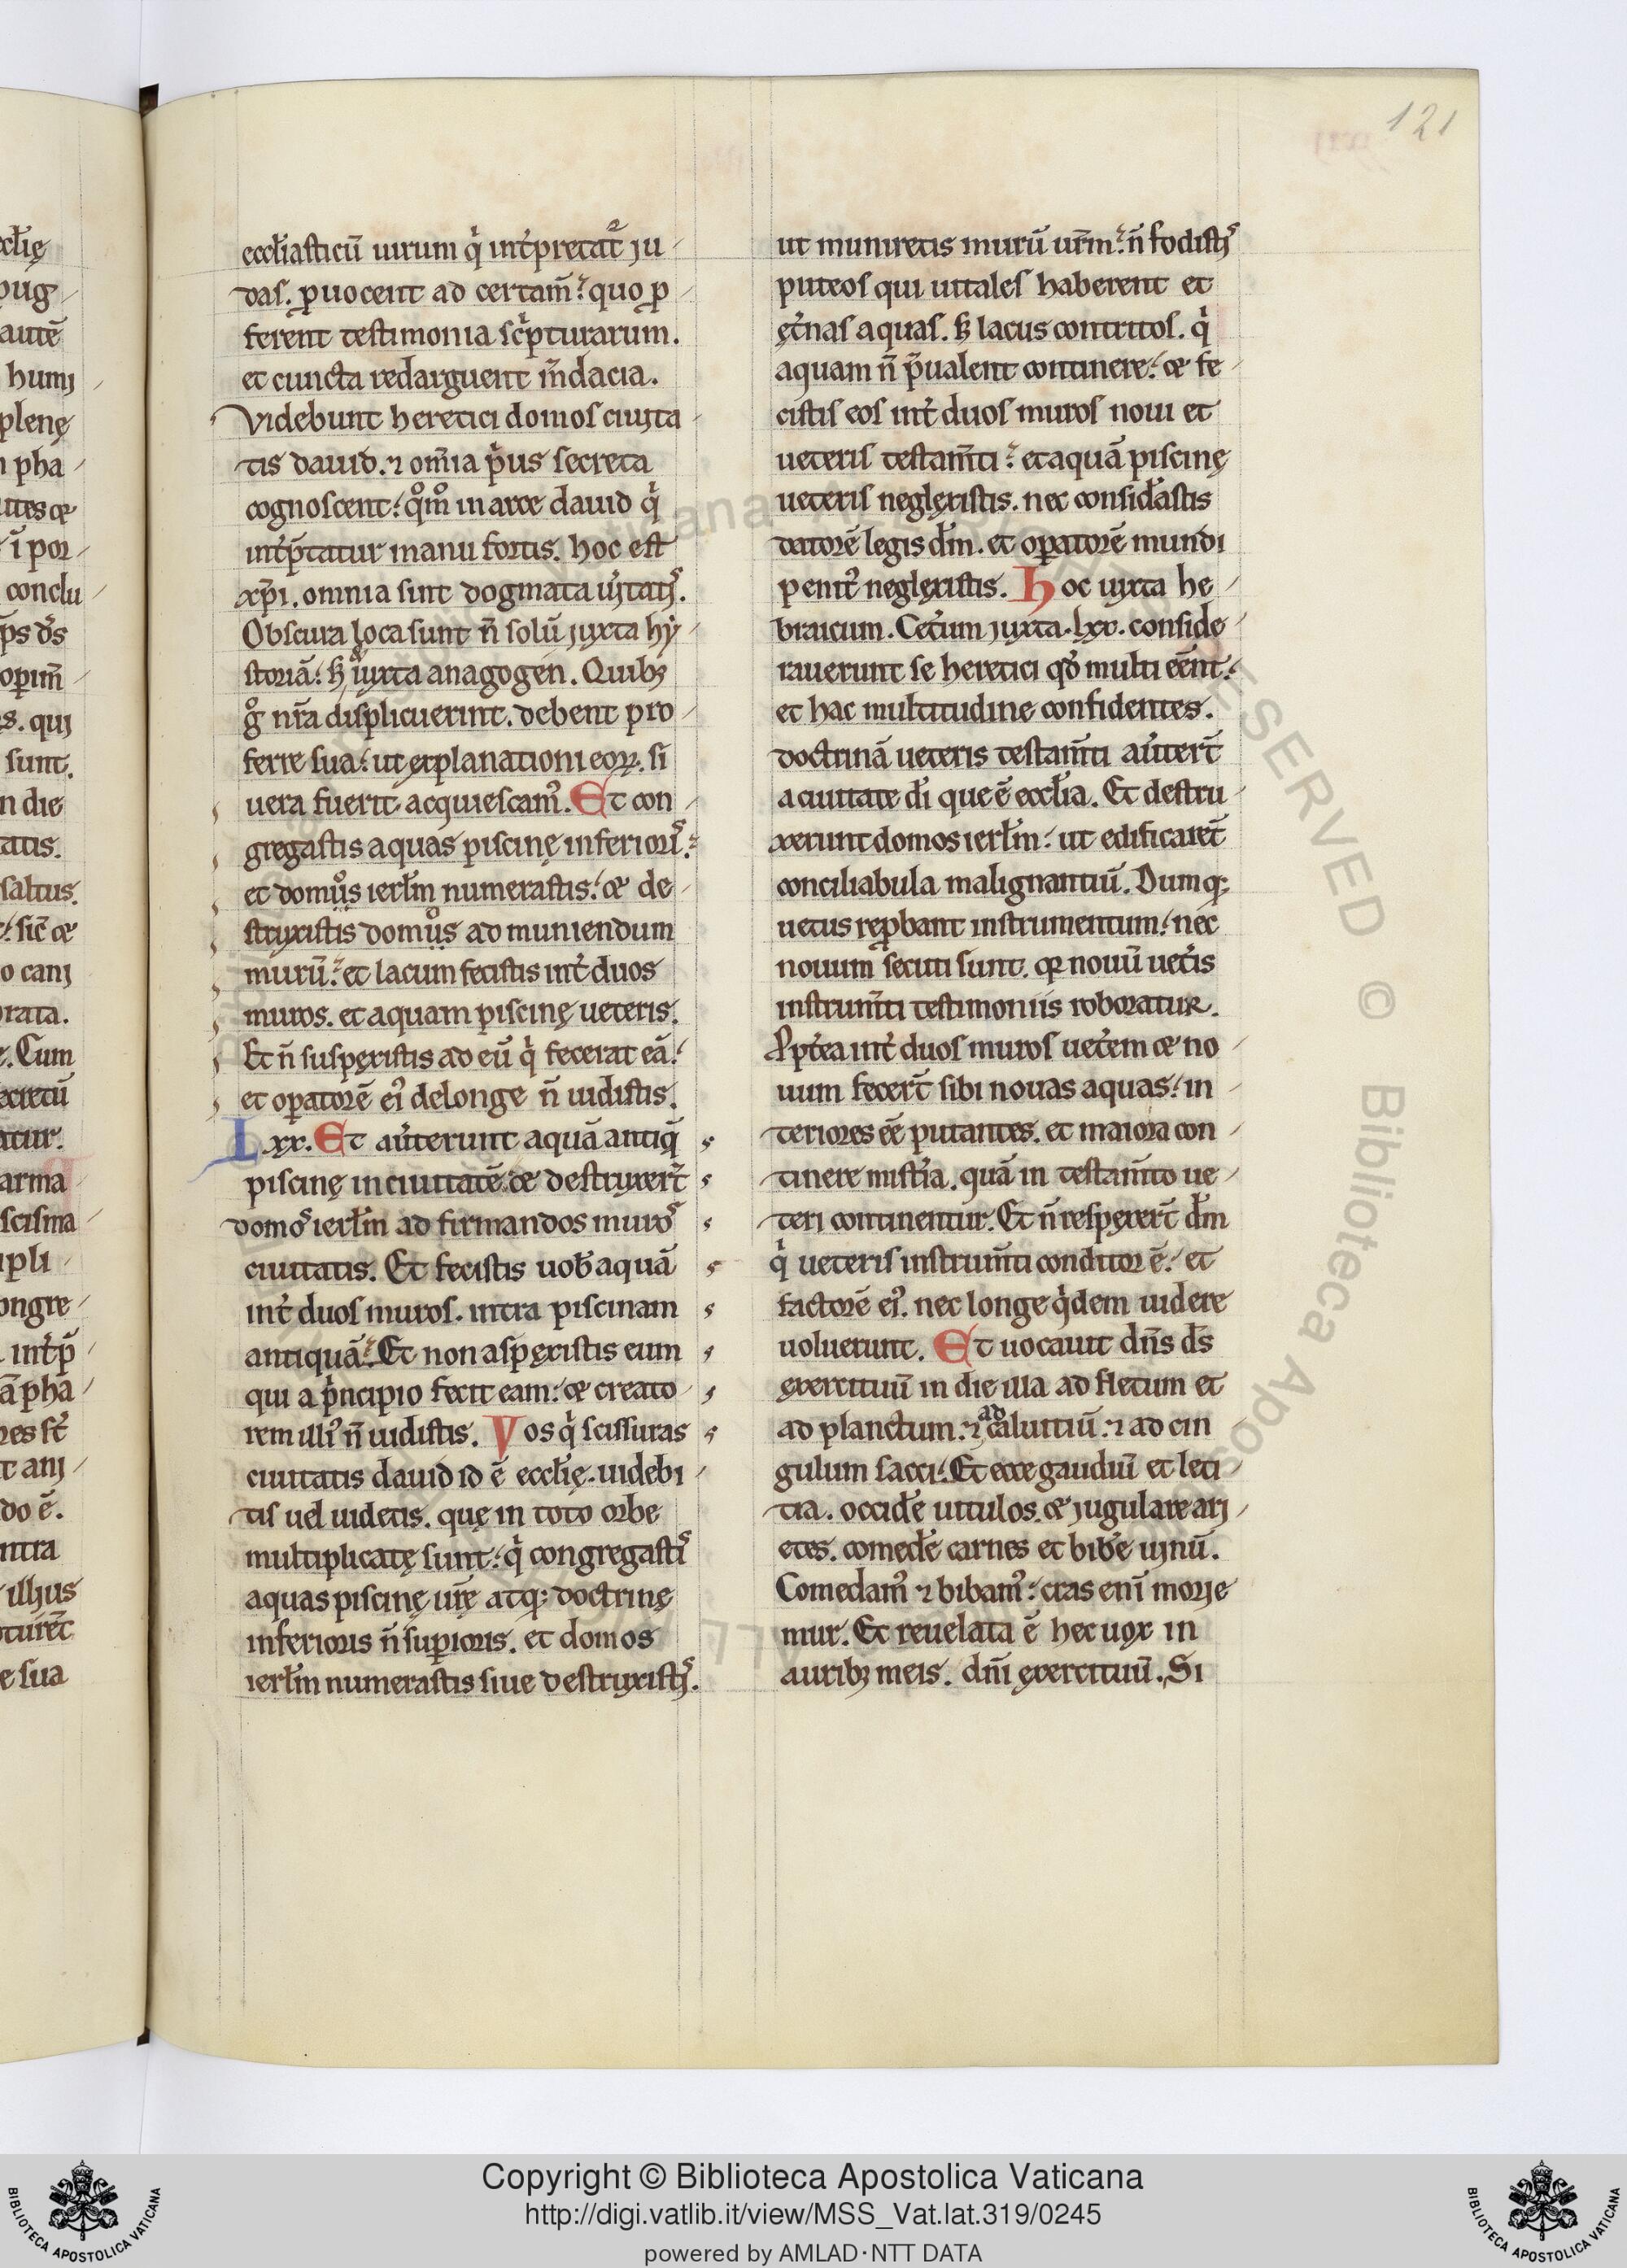 121
eccłiasticū uirum q̇ int̓pretat̄ᷣ ju
das. ꝓuocent ad certam̄. quo ꝓ
ferent testimonia sc̓pturarum.
et cuncta redarguent m̄dacia.
Videbunt heretici domos ciuita
tis dauid. ⁊ om̄ia p̓us secreta
cognoscent. qm̊ in arce dauid q̇
int̓p̄tatur manu fortis. hoc est
xp̄i. omnia sunt dogmata ueritatis.
Obscura loca sunt n̄ solū juxta hy
storiā. sꝫ iuxta anagogen. Quibꝫ
g̊ nr̄a displicuerint. debent pro
ferre sua. ut explanationi eoꝝ. si
uera fuerit acquiescam᾽. Et con
gregastis aquas piscinę inferioris.
et domos ierłm numerastis. & de
struxistis domos ad muniendum
murū. et lacum fecistis int̓ duos
muros. et aquam piscinę ueteris.
Et n̄ suspexistis ad eū q̇ fecerat eā.
et oꝑatorē ei᾽ delonge n̄ uidistis.
Lxx. Et au̓terunt aquā antiq̄
piscinę in ciuitatē. & destruxer̄t
domos ierłm ad firmandos muros
ciuitatis. Et fecistis uob̄ aquā
int̓ duos muros. intra piscinam
antiquā. Et non aspexistis eum
qui a p̓ncipio fecit eam. & creato
rem illi᾽ n̄ uidistis. Vos q̇ scissuras
ciuitatis dauid id ē eccłię. uidebi
tis uel uidetis. quę in toto orbe
multiplicatę sunt. q̇ congregastis
aquas piscinę ur̄ę atqꝫ doctrinę
inferioris n̄ suꝑioris. et domos
ierłm numerastis siue destruxistis.
ut muniretis murū ur̄m. n̄ fodistis
puteos qui uitales haberent et
ęt̓nas aquas. sꝫ lacus contritos. q̇
aquam n̄ p̄ualent continere. & fe
cistis eos int̓ duos muros noui et
ueteris testam̄ti. et aquā piscinę
ueteris neglexistis. nec consid̓astis
datorē legis dm̄. et oꝑatorē mundi
penit᾽ neglexistis. Hoc iuxta he
braicum. Cet̓um juxta. lxx. conside
rauerunt se heretici qd̓ multi eēnt.
et hac multitudine confidentes.
doctrinā ueteris testam̄ti au̓ter̄t
a ciuitate di̓ que ē eccłia. Et destru
xerunt domos ierłm. ut edificarēt
conciliabula malignantiū. Dumqꝫ
uetus reꝓbant instrumentum. nec
nouum secuti sunt. qr nouū uet̓is
instrum̄ti testimoniis roboratur.
Ppt̓ea int̓ duos muros uet̓em & no
uum fecer̄t sibi nouas aquas. in
teriores eē putantes. et maiora con
tinere mist̓ia. quā in testam̄to ue
teri continentur. Et n̄ respexer̄t dm̄
q̇ ueteris instrum̄ti conditor ē. et
factorē ei᾽. nec longe q̇dem uidere
uoluerunt. Et uocauit dn̄s ds̄
exercituū in die illa ad fletum et
ad planctum. ⁊ ad caluitiū. ⁊ ad cin
gulum sacci. Et ecce gaudiū et leti
tia. occid̓e uitulos. & jugulare ari
etes. comed̓e carnes et bib̓e uinū.
Comedam᾽ ⁊ bibam᾽. cras eni̅ morie
mur. Et reuelata ē hec uox in
auribꝫ meis. dn̄i exercituū. Si
Copyright © Biblioteca Apostolica Vaticana
http://digi.vatlib.it/view/MSS_Vat.lat.319/0245
powered by AMLAD·NTT DATA
BIBLIOTECA APOSTOLICA VATICANA
BIBLIOTECA APOSTOLICA VATICANA